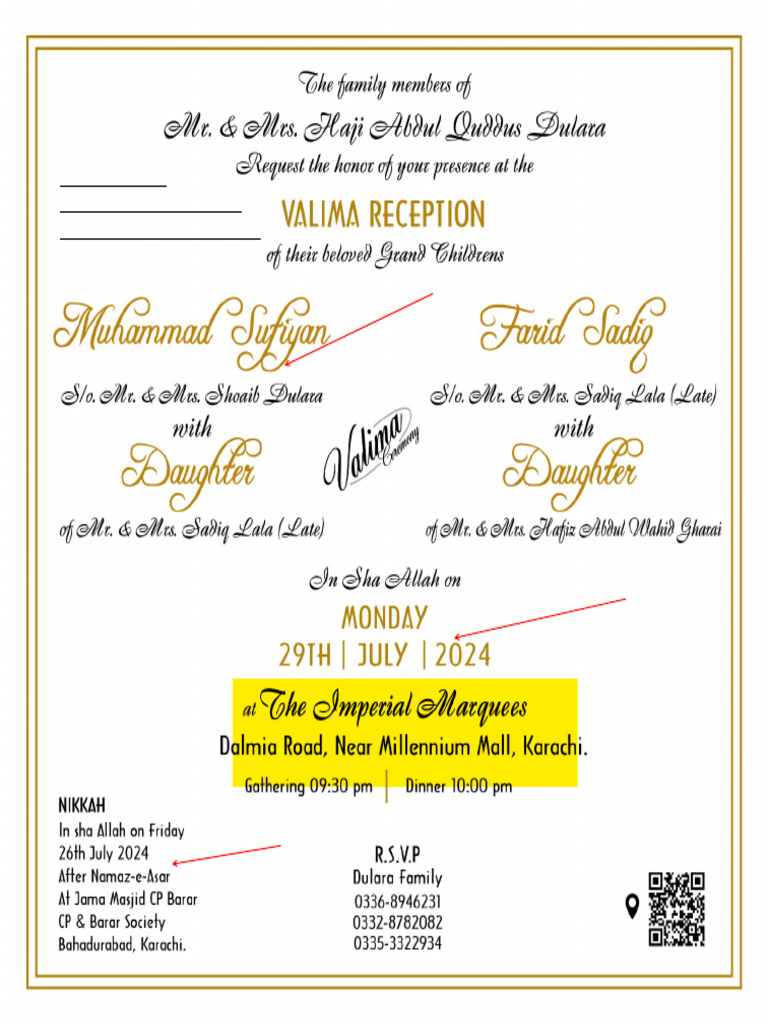 The family members of
Mr. & Mrs. Haji Abdul Quddus Dulara
Request the honor of your presence at the
VALIMA RECEPTION
of their beloved Grand Childrens
Muhammad Sufiyan
S/o. Mr. & Mrs. Shoaib Dulara
with
Daughter
of Mr. & Mrs. Sadiq Lala (Late)
Farid Sadiq
S/o. Mr. & Mrs. Sadiq Lala (Late)
with
Daughter
of Mr. & Mrs. Hafiz Abdul Wahid Gharai
Valima
Ceremony
In Sha Allah on
MONDAY
29TH | JULY | 2024
at The Imperial Marquees
Dalmia Road, Near Millennium Mall, Karachi.
Gathering 09:30 pm | Dinner 10:00 pm
NIKKAH
In sha Allah on Friday
26th July 2024
After Namaz-e-Asar
At Jama Masjid CP Barar
CP & Barar Society
Bahadurabad, Karachi.
R.S.V.P
Dulara Family
0336-8946231
0332-8782082
0335-3322934